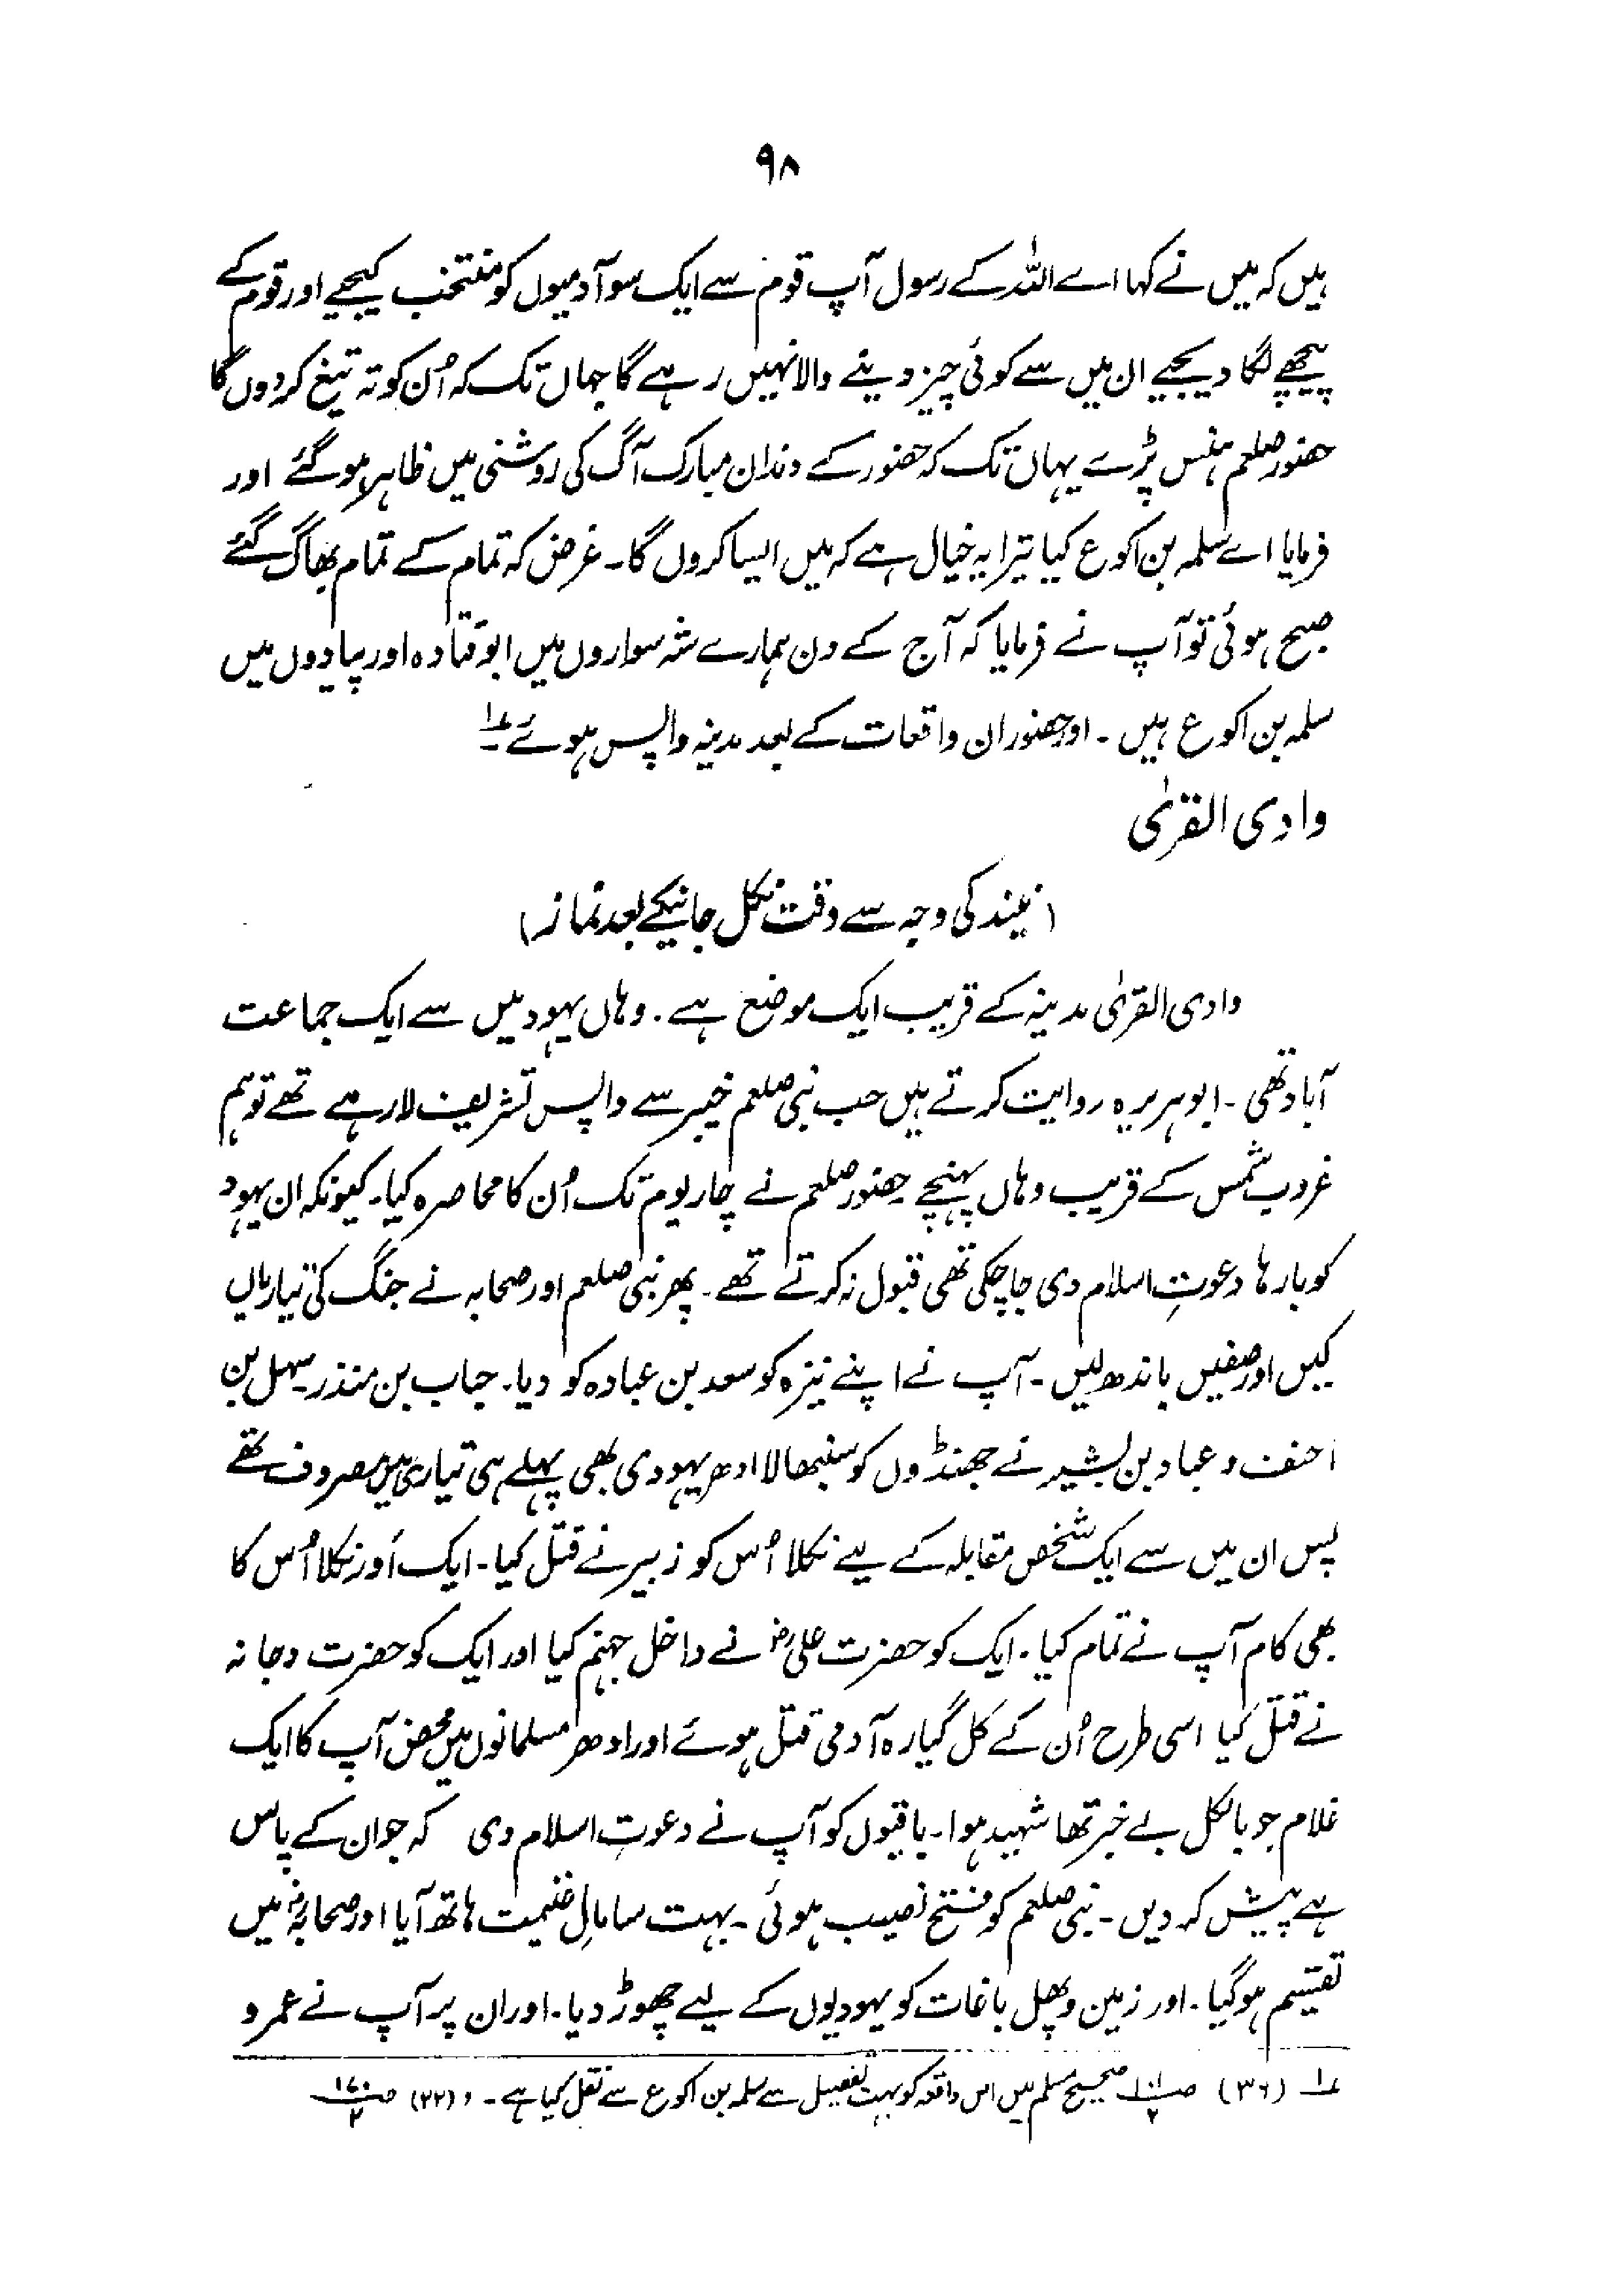 ۹۸
ہیں کہ میں نے کہا اے اللہ کے رسول آپ قوم سے ایک سو آدمیوں کو منتخب کیجیے اور قوم کے
پیچھے لگا دیجیے ان میں سے کوئی چیز دینے والا نہیں رہے گا جہاں تک کہ اُن کو تہ تیغ کر دوں گا
حضور صلعم ہنس پڑے یہاں تک کہ حضور کے دندان مبارک آگ کی روشنی میں ظاہر ہو گئے اور
فرمایا اے سلمہ بن اکوع کیا تیرا یہ خیال ہے کہ میں ایسا کروں گا۔ غرض کہ تمام کے تمام بھاگ گئے
صبح ہوئی تو آپ نے فرمایا کہ آج کے دن ہمارے شہ سواروں میں ابو قتادہ اور پیادوں میں
سلمہ بن اکوع ہیں۔ اور حضور ان واقعات کے بعد مدینہ واپس ہوئے ؎۱
وادی القریٰ
(نیند کی وجہ سے وقت نکل جانیکے بعد نماز)
وادی القریٰ مدینہ کے قریب ایک موضع ہے۔ وہاں یہود میں سے ایک جماعت
آباد تھی۔ ابوہریرہ روایت کرتے ہیں جب نبی صلعم خیبر سے واپس تشریف لا رہے تھے تو ہم
غروب شمس کے قریب وہاں پہنچے حضور صلعم نے چار یوم تک اُن کا محاصرہ کیا۔ کیونکہ ان یہود
کو بارہا دعوتِ اسلام دی جا چکی تھی قبول نہ کرتے تھے۔ پھر نبی صلعم اور صحابہ نے جنگ کی تیاریاں
کیں اور صفیں باندھ لیں۔ آپ نے اپنے نیزہ کو سعد بن عبادہ کو دیا۔ حباب بن منذر۔ سہل بن
احنف و عباد بن بشیر نے جھنڈوں کو سنبھالا ادھر یہودی بھی پہلے ہی تیاری میں مصروف تھے
پس ان میں سے ایک شخص مقابلہ کے لیے نکلا اُس کو زبیر نے قتل کیا۔ ایک اَور نکلا اُس کا
بھی کام آپ نے تمام کیا۔ ایک کو حضرت علیؓ نے داخل جہنم کیا اور ایک کو حضرت دجانہ
نے قتل کیا اسی طرح اُن کے کل گیارہ آدمی قتل ہوئے اور ادھر مسلمانوں میں محض آپ کا ایک
غلام جو بالکل بے خبر تھا شہید ہوا۔ باقیوں کو آپ نے دعوتِ اسلام دی کہ جو ان کے پاس
ہے پیش کر دیں۔ نبی صلعم کو فتح نصیب ہوئی۔ بہت سا مالِ غنیمت ہاتھ آیا اور صحابہؓ میں
تقسیم ہو گیا۔ اور زمین و پھل باغات کو یہودیوں کے لیے چھوڑ دیا۔ اور ان پر آپ نے عمرو
؎۱ (۳۶) ص ۱۰۱/۲ صحیح مسلم میں اس واقعہ کو بہت تفصیل سے سلمہ بن اکوع سے نقل کیا ہے۔ و (۳۲) ص ۱۷۰/۲